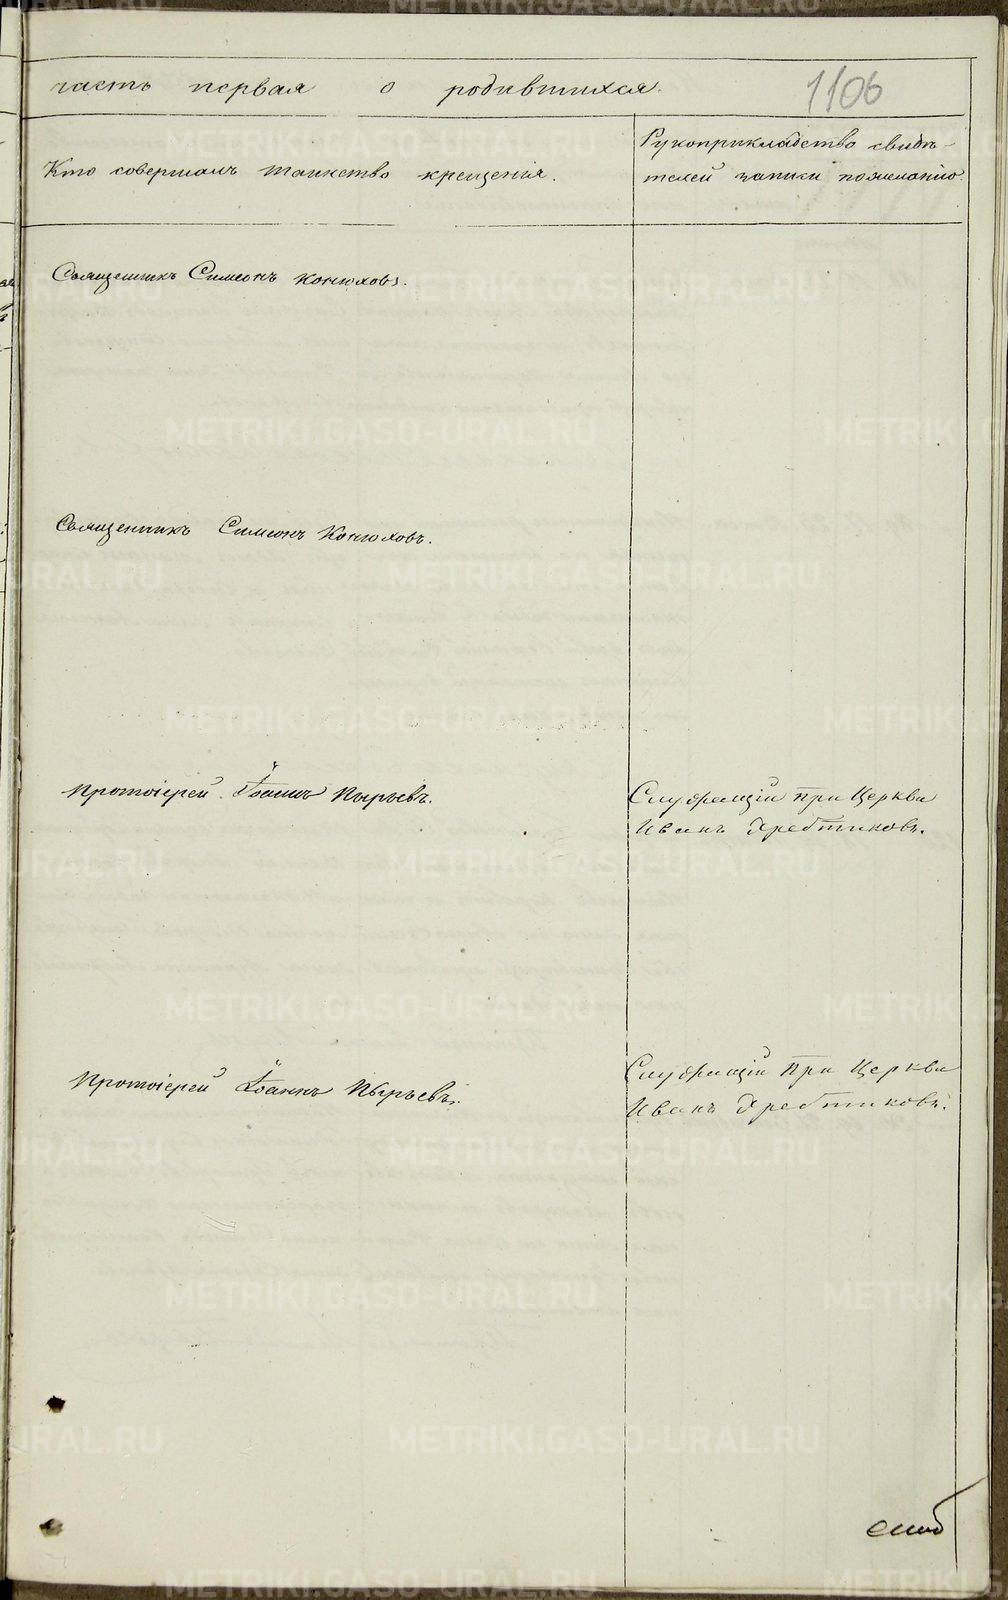 часть первая о родившихся.
1106
Кто совершалъ таинство крещенія.
Рукоприкладство свидѣ-
телей записи по желанію.
Священникъ Симеонъ Конюховъ.
Священникъ Симеонъ Конюховъ.
Протоіерей Іоаннъ Пырьевъ.
Служащій при Церкви
Иванъ Хребтиковъ.
Протоіерей Іоаннъ Пырьевъ.
Служащій при Церкви
Иванъ Хребтиковъ.
METRIKI.GASO-URAL.RU